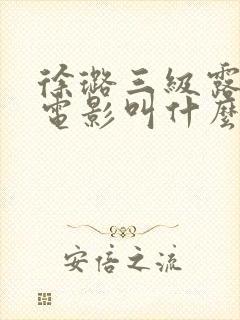 徐璐三級露
電影叫什麼
安倍之流